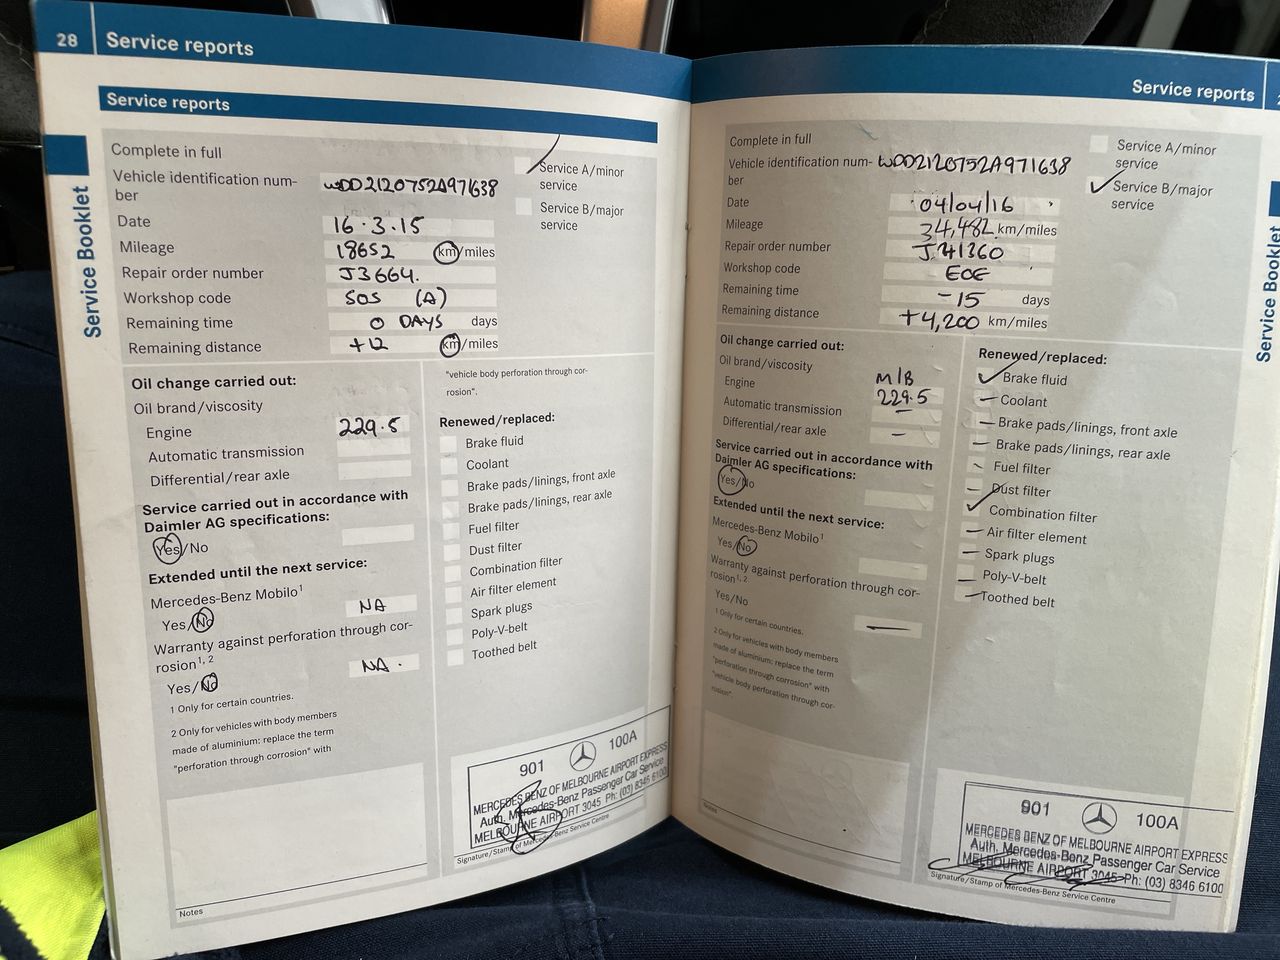 28 Service reports
Service reports
Service Booklet
Complete in full
Vehicle identification num-
ber
WDD2120752A971638
Service A/minor
service
Service B/major
service
Date 16.3.15
Mileage 18652 km/miles
Repair order number J3664.
Workshop code SOS (A)
Remaining time 0 DAYS days
Remaining distance +12 km/miles
Oil change carried out:
Oil brand/viscosity
Engine 229.5
Automatic transmission
Differential/rear axle
Service carried out in accordance with
Daimler AG specifications:
Yes/No
Extended until the next service:
Mercedes-Benz Mobilo¹
Yes/No NA
Warranty against perforation through cor-
rosion¹,²
Yes/No NA.
1 Only for certain countries.
2 Only for vehicles with body members
made of aluminium: replace the term
"perforation through corrosion" with
"vehicle body perforation through cor-
rosion".
Renewed/replaced:
Brake fluid
Coolant
Brake pads/linings, front axle
Brake pads/linings, rear axle
Fuel filter
Dust filter
Combination filter
Air filter element
Spark plugs
Poly-V-belt
Toothed belt
901 100A
MERCEDES BENZ OF MELBOURNE AIRPORT EXPRESS
Auth. Mercedes-Benz Passenger Car Service
MELBOURNE AIRPORT 3045 Ph: (03) 8346 6100
Signature/Stamp of Mercedes-Benz Service Centre
Notes
Service reports
Service Booklet
Complete in full
Vehicle identification num-
ber
WDD2120752A971638
Service A/minor
service
Service B/major
service
Date 04/04/16
Mileage 34,482 km/miles
Repair order number J41360
Workshop code EOE
Remaining time -15 days
Remaining distance +4,200 km/miles
Oil change carried out:
Oil brand/viscosity
Engine M/B 229.5
Automatic transmission –
Differential/rear axle –
Service carried out in accordance with
Daimler AG specifications:
Yes/No
Extended until the next service:
Mercedes-Benz Mobilo¹
Yes/No
Warranty against perforation through cor-
rosion¹,²
Yes/No —
1 Only for certain countries.
2 Only for vehicles with body members
made of aluminium: replace the term
"perforation through corrosion" with
"vehicle body perforation through cor-
rosion".
Renewed/replaced:
Brake fluid
Coolant
Brake pads/linings, front axle
Brake pads/linings, rear axle
Fuel filter
Dust filter
Combination filter
Air filter element
Spark plugs
Poly-V-belt
Toothed belt
901 100A
MERCEDES BENZ OF MELBOURNE AIRPORT EXPRESS
Auth. Mercedes-Benz Passenger Car Service
MELBOURNE AIRPORT 3045 Ph: (03) 8346 6100
Signature/Stamp of Mercedes-Benz Service Centre
Notes